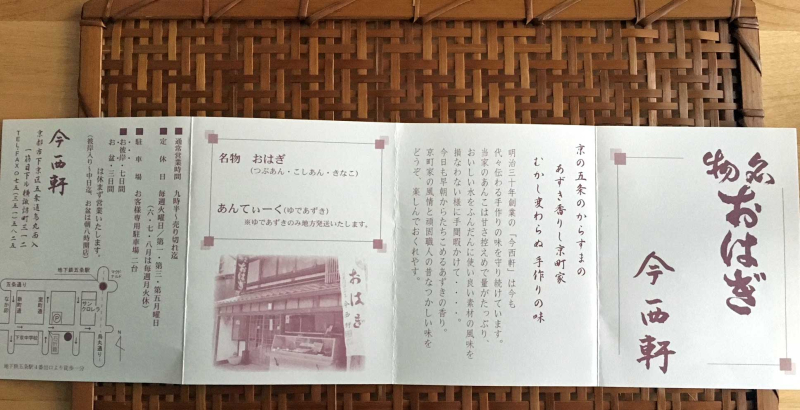 名物
おはぎ
今西軒
京の五条のからすまの
あずき香りし京町家
むかし変わらぬ 手作りの味
明治三十年創業の「今西軒」は今も
代々伝わる手作りの味を守り続けています。
当家のあんこは甘さ控えめで量がたっぷり、
おいしい水をふんだんに使い良い素材の風味を
損なわない様に手間暇かけて・・・・。
今日も早朝からたちこめるあずきの香り。
京町家の風情と頑固職人の昔なつかしい味を
どうぞ、楽しんでおくれやす。
名物 おはぎ
(つぶあん・こしあん・きなこ)
あんてぃーく(ゆであずき)
※ゆであずきのみ地方発送いたします。
おはぎ
■通常営業時間 九時半〜売り切れ迄
■定休日 毎週火曜日/第一・第三・第五月曜日
(六・七・八月は毎週月火休)
■駐車場 お客様専用駐車場 二台
■お彼岸・七日間
お盆・三日間
は休まず営業いたします。
今西軒
京都市下京区五条通烏丸西入
一筋目下ル横諏訪町三一二
地下鉄五条駅
五条通り
サンクロレラ
室町通
烏丸通り
下京中学校
N